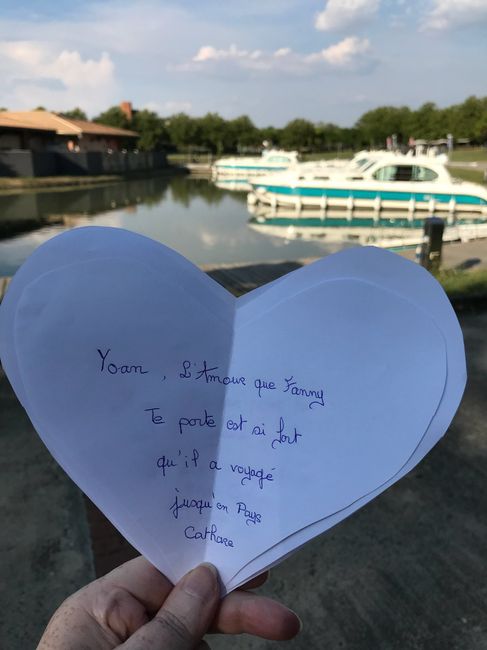 Yoan, L'Amour que Fanny
Te porte est si fort
qu'il a voyagé
jusqu'en Pays
Cathare